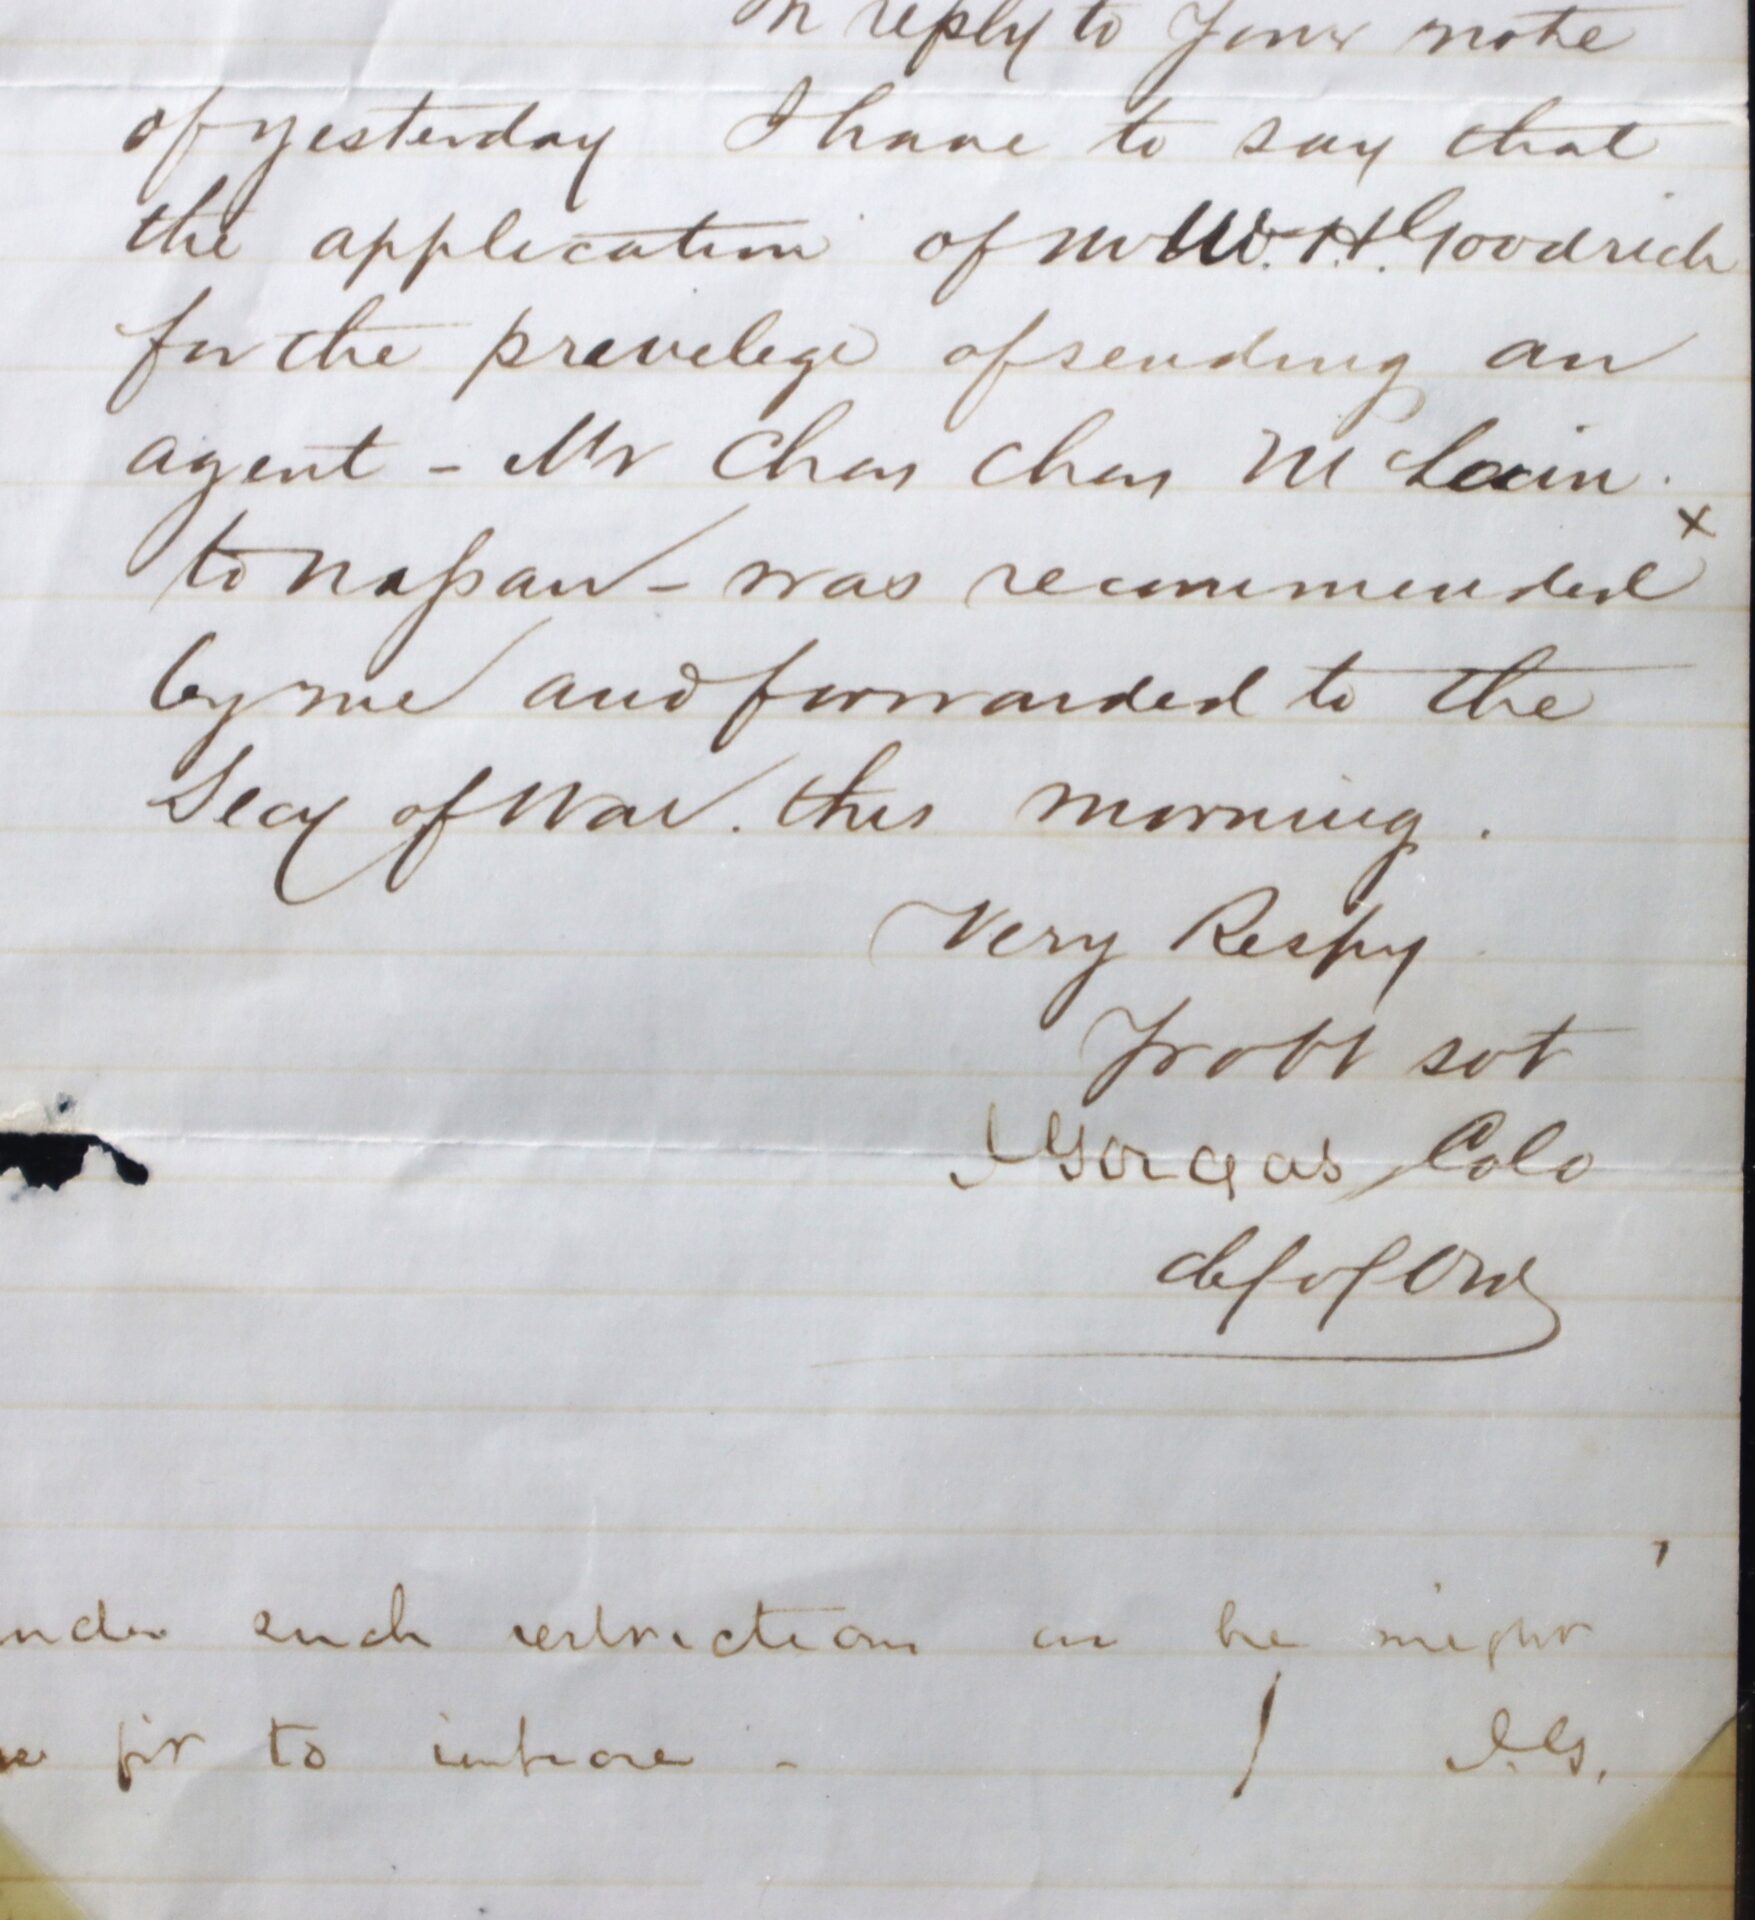 In reply to Your note
of yesterday I have to say that
the application of Mr W. H. Goodrich
for the prevelege of sending an
agent - Mr Chas Chas McLain.
to Nassau - was recommended x
by me and forwarded to the
Secy of War. this morning.
Very Respy
Yr obt svt
J Gorgas Colo
Chf of Ord
under such restrictions as he might
see fit to impose - J. G.